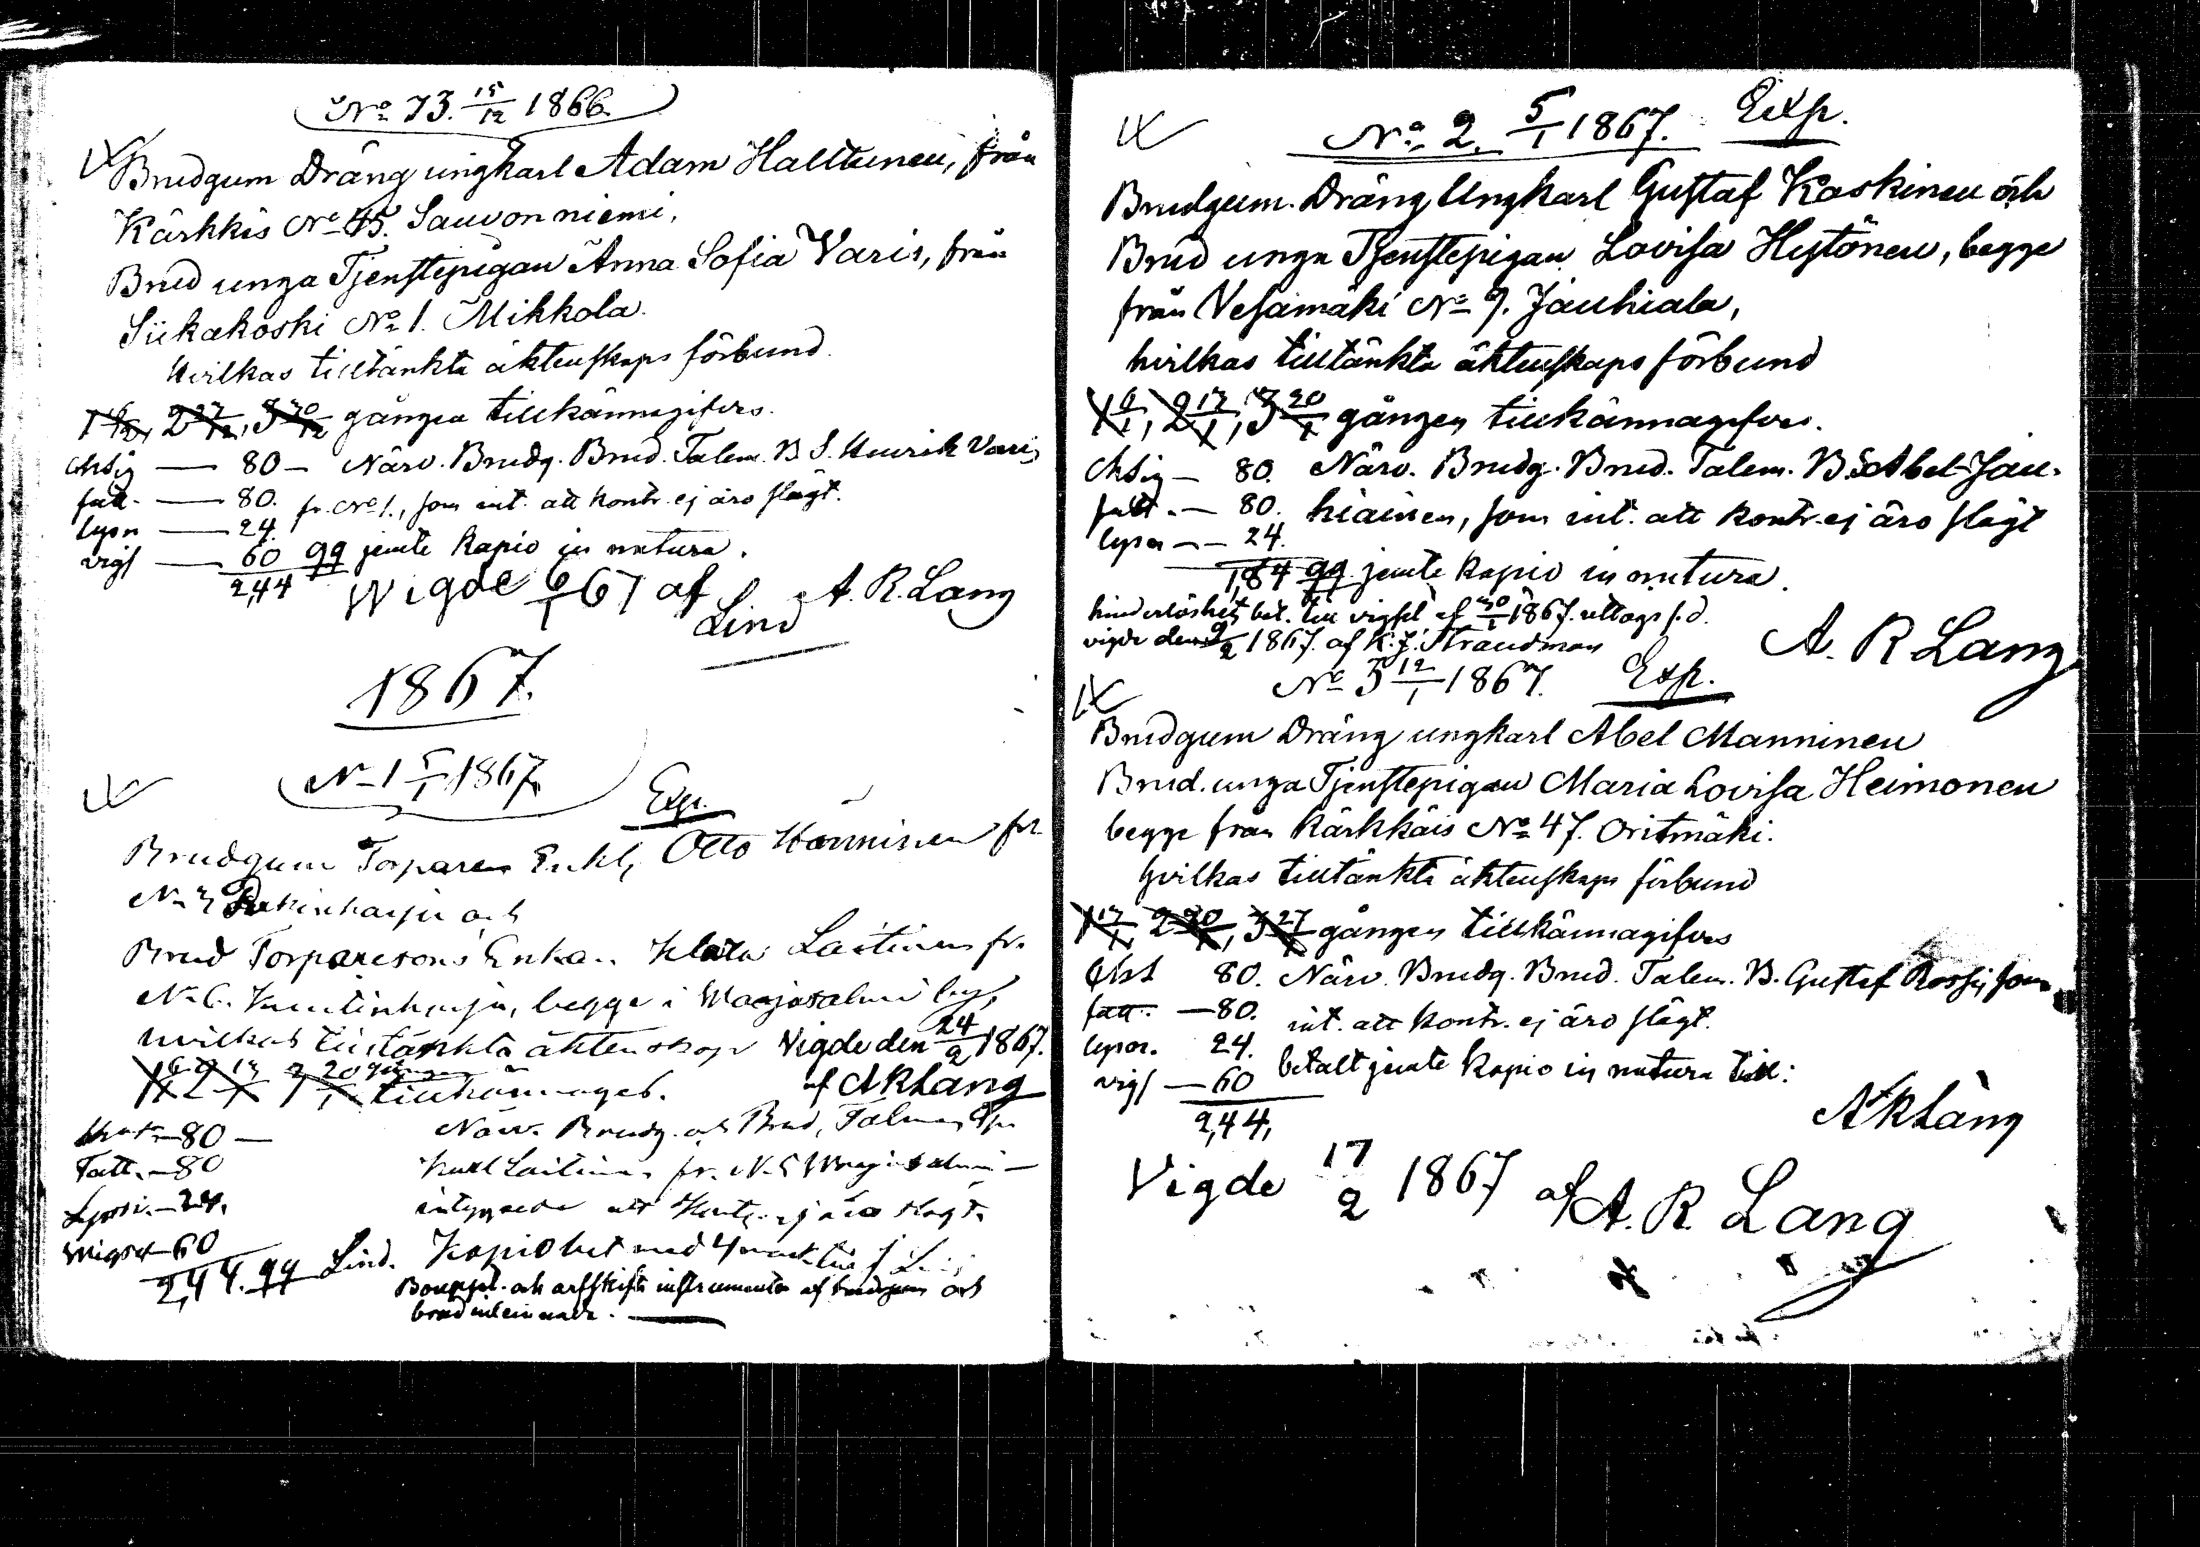 No 73. 15/12 1866.
Brudgum Dräng ungkarl Adam Halttunen, från
Kärkkis No 45. Sauvonniemi,
Brud unga Tjenstepigan Anna Sofia Varis, från
Siikakoski No 1. Mikkola.
hvilkas tilltänkta äktenskaps förbund
gången tillkännagifves.
80 — Närv. Brudg. Brud. Talem. B. S. Henrik Varis
fatt. — 80. fr. No 1., som int. att kontr. ej äro slägt.
lysn — 24.
vigs — 60 qq jemte kapio in natura.
2,44 Wigde 6/1 67 af A. R. Lang
Lind
1867.
No 1 5/1 1867.
Exp.
Brudgum Torparen Enkl. Otto Hänninen fr.
och
Brud Torparesons Enkan Laitinen fr.
No 6. begge i Maajasalmi by,
hvilkas tilltänkta äktenskap Vigde den 24/2 1867.
tillkännages. af A R Lang
80 — Närv. Brudg. och Brud, Talman
Fatt. — 80 Karl Laitinen fr. No 5
Lysn. — 24. intygade att Kontr. ej äro slägt.
Wigsel — 60
2,44. qq Lind. Kapio bet med 4 mark
Bouppt. och arfskifts instrumenter af brudgum och
brud
No 2. 5/1 1867. Exp.
Brudgum. Dräng Ungkarl Gustaf Koskinen och
Brud unga Tjenstepigan Lovisa Hytönen, begge
från Vesamäki No 7. Jauhiala,
hvilkas tilltänkta äktenskaps förbund
1 6/1, 2 13/1, 3 20/1 gången tillkännagifves.
80. Närv. Brudg. Brud. Talem. B. S. Abel Jau-
fatt. — 80. hiainen, som int. att kontr. ej äro slägt
lysn — 24.
1,84 qq. jemte kapio in natura.
hinderlöshets bet. till vigsel af 20/1 1867. uttogs s. d.
vigde den 2/2 1867. af K. J. Strandman A. R Lang
No 3 12/1 1867. Exp.
Brudgum Dräng ungkarl Abel Manninen
Brud. unga Tjenstepigan Maria Lovisa Heimonen
begge från Kärkkäis No 47. Oritmäki.
hvilkas tilltänkta äktenskaps förbund
1 13/1, 2 20/1, 3 27/1 gången tillkännagifves
80. Närv. Brudg. Brud. Talem. B. Gustaf Rossi, som
fatt. — 80. int. att kontr. ej äro slägt.
lysn. 24. betalt jemte kapio in natura till:
vigs — 60
2,44, A R Lang
Vigde 17/2 1867 af A. R Lang